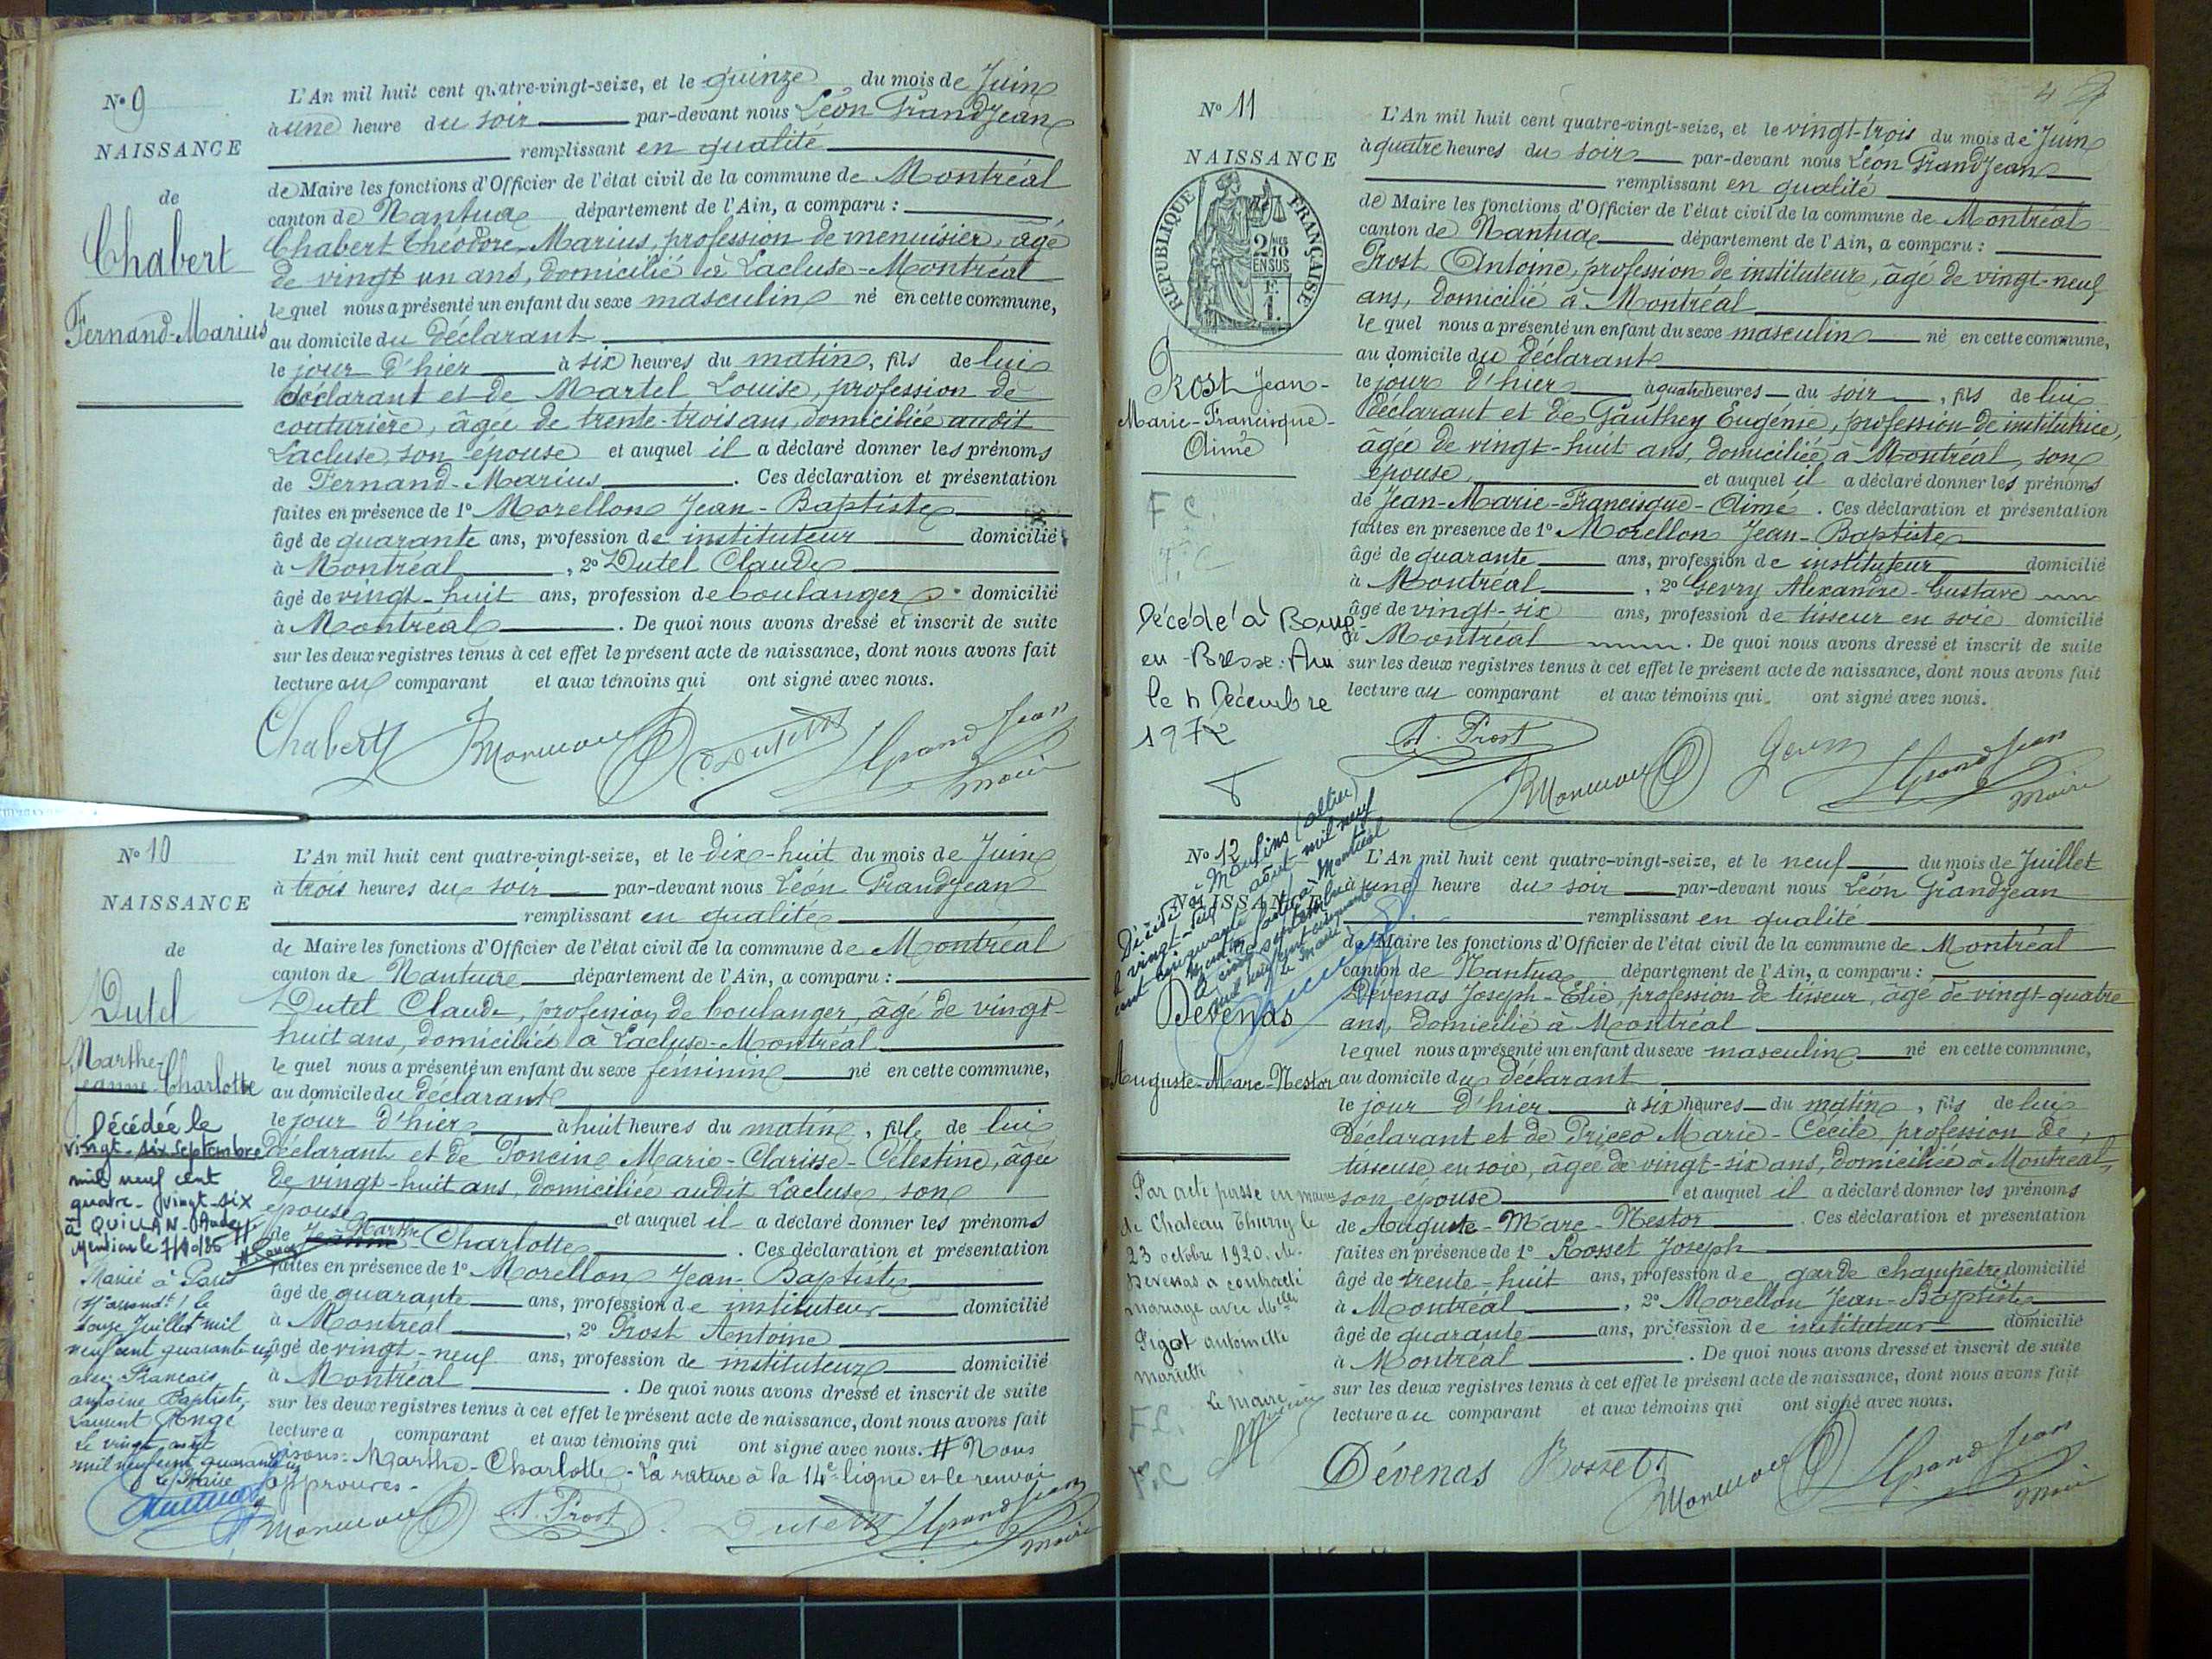 N° 9
NAISSANCE
de
Chabert
Fernand-Marius
L'An mil huit cent quatre-vingt-seize, et le quinze du mois de Juin
à une heure du soir par-devant nous Léon Grandjean
remplissant en qualité
de Maire les fonctions d'Officier de l'état civil de la commune de Montréal
canton de Nantua département de l'Ain, a comparu :
Chabert Théodore, Marius, profession de menuisier, âgé
de vingt un ans, domicilié à Lacluse-Montréal
lequel nous a présenté un enfant du sexe masculin né en cette commune,
au domicile du déclarant
le jour d'hier à six heures du matin, fils de lui
déclarant et de Martel Louise, profession de
couturière, âgée de trente-trois ans, domiciliée audit
Lacluse, son épouse et auquel il a déclaré donner les prénoms
de Fernand-Marius. Ces déclaration et présentation
faites en présence de 1° Morellon Jean-Baptiste
âgé de quarante ans, profession de instituteur domicilié
à Montréal, 2° Dutel Claude
âgé de vingt-huit ans, profession de boulanger domicilié
à Montréal. De quoi nous avons dressé et inscrit de suite
sur les deux registres tenus à cet effet le présent acte de naissance, dont nous avons fait
lecture au comparant et aux témoins qui ont signé avec nous.
Chabert Dutel Grandjean
maire
N° 10
NAISSANCE
de
Dutel
Marthe-
Jeanne-Charlotte
Décédée le
vingt-six septembre
mil neuf cent
quatre-vingt-six
à QUILLAN (Aude)
Mention le 7/10/86
Marié à Paris
Juillet mil
neuf cent quarante un
avec François
antoine Baptiste,
Laurent Ange
Le vingt août
mil neuf cent quarante un
Le Maire
L'An mil huit cent quatre-vingt-seize, et le dix-huit du mois de Juin
à trois heures du soir par-devant nous Léon Grandjean
remplissant en qualité
de Maire les fonctions d'Officier de l'état civil de la commune de Montréal
canton de Nantua département de l'Ain, a comparu :
Dutel Claude, profession de boulanger, âgé de vingt-
huit ans, domicilié à Lacluse-Montréal
lequel nous a présenté un enfant du sexe féminin né en cette commune,
au domicile du déclarant
le jour d'hier à huit heures du matin, fille de lui
déclarant et de Poncin Marie-Clarisse-Célestine, âgée
de vingt-huit ans, domiciliée audit Lacluse, son
épouse et auquel il a déclaré donner les prénoms
Marthe
de Jeanne-Charlotte. Ces déclaration et présentation
faites en présence de 1° Morellon Jean-Baptiste
âgé de quarante ans, profession de instituteur domicilié
à Montréal, 2° Prost Antoine
âgé de vingt-neuf ans, profession de instituteur domicilié
à Montréal. De quoi nous avons dressé et inscrit de suite
sur les deux registres tenus à cet effet le présent acte de naissance, dont nous avons fait
lecture a comparant et aux témoins qui ont signé avec nous. # Nous
disons: Marthe-Charlotte - La rature à la 14e ligne et le renvoi
approuvés.
A. Prost Dutel Grandjean
maire
N° 11
NAISSANCE
RÉPUBLIQUE FRANÇAISE
2/10
EN SUS
F.
1.
Prost Jean-
Marie-Francisque-
Aimé
F C.
F. C
Décédé à Bourg
en-Bresse: Ain
le Décembre
1972
L'An mil huit cent quatre-vingt-seize, et le vingt-trois du mois de Juin
à quatre heures du soir par-devant nous Léon Grandjean
remplissant en qualité
de Maire les fonctions d'Officier de l'état civil de la commune de Montréal
canton de Nantua département de l'Ain, a comparu :
Prost Antoine, profession de instituteur, âgé de vingt-neuf
ans, domicilié à Montréal
lequel nous a présenté un enfant du sexe masculin né en cette commune,
au domicile du déclarant
le jour d'hier à quatre heures du soir, fils de lui
déclarant et de Gauthey Eugénie, profession de institutrice,
âgée de vingt-huit ans, domiciliée à Montréal, son
épouse, et auquel il a déclaré donner les prénoms
de Jean-Marie-Francisque-Aimé. Ces déclaration et présentation
faites en présence de 1° Morellon Jean-Baptiste
âgé de quarante ans, profession de instituteur domicilié
à Montréal, 2° Gevry Alexandre-Gustave
âgé de vingt-six ans, profession de tisseur en soie domicilié
à Montréal. De quoi nous avons dressé et inscrit de suite
sur les deux registres tenus à cet effet le présent acte de naissance, dont nous avons fait
lecture au comparant et aux témoins qui ont signé avec nous.
A. Prost Grandjean
maire
N° 12
NAISSANCE
Décédé à Moulins (allier)
vingt août mil neuf
cent cinquante
le Maire
Dévenas
Auguste-Marc-Nestor
Par acte passé en mairie
de Chateau Thierry le
23 octobre 1920. M.
Devenas a contracté
mariage avec Melle
Pigot antoinette
Mariette
Le maire
F. C.
F. C
L'An mil huit cent quatre-vingt-seize, et le neuf du mois de Juillet
à une heure du soir par-devant nous Léon Grandjean
remplissant en qualité
de Maire les fonctions d'Officier de l'état civil de la commune de Montréal
canton de Nantua département de l'Ain, a comparu :
Dévenas Joseph-Elie, profession de tisseur, âgé de vingt-quatre
ans, domicilié à Montréal
lequel nous a présenté un enfant du sexe masculin né en cette commune,
au domicile du déclarant
le jour d'hier à six heures du matin, fils de lui
déclarant et de Marie-Cécile, profession de
tisseuse en soie, âgée de vingt-six ans, domiciliée à Montréal,
son épouse et auquel il a déclaré donner les prénoms
de Auguste-Marc-Nestor. Ces déclaration et présentation
faites en présence de 1° Rosset Joseph
âgé de trente-huit ans, profession de garde champêtre domicilié
à Montréal, 2° Morellon Jean-Baptiste
âgé de quarante ans, profession de instituteur domicilié
à Montréal. De quoi nous avons dressé et inscrit de suite
sur les deux registres tenus à cet effet le présent acte de naissance, dont nous avons fait
lecture au comparant et aux témoins qui ont signé avec nous.
Dévenas Rosset Grandjean
maire